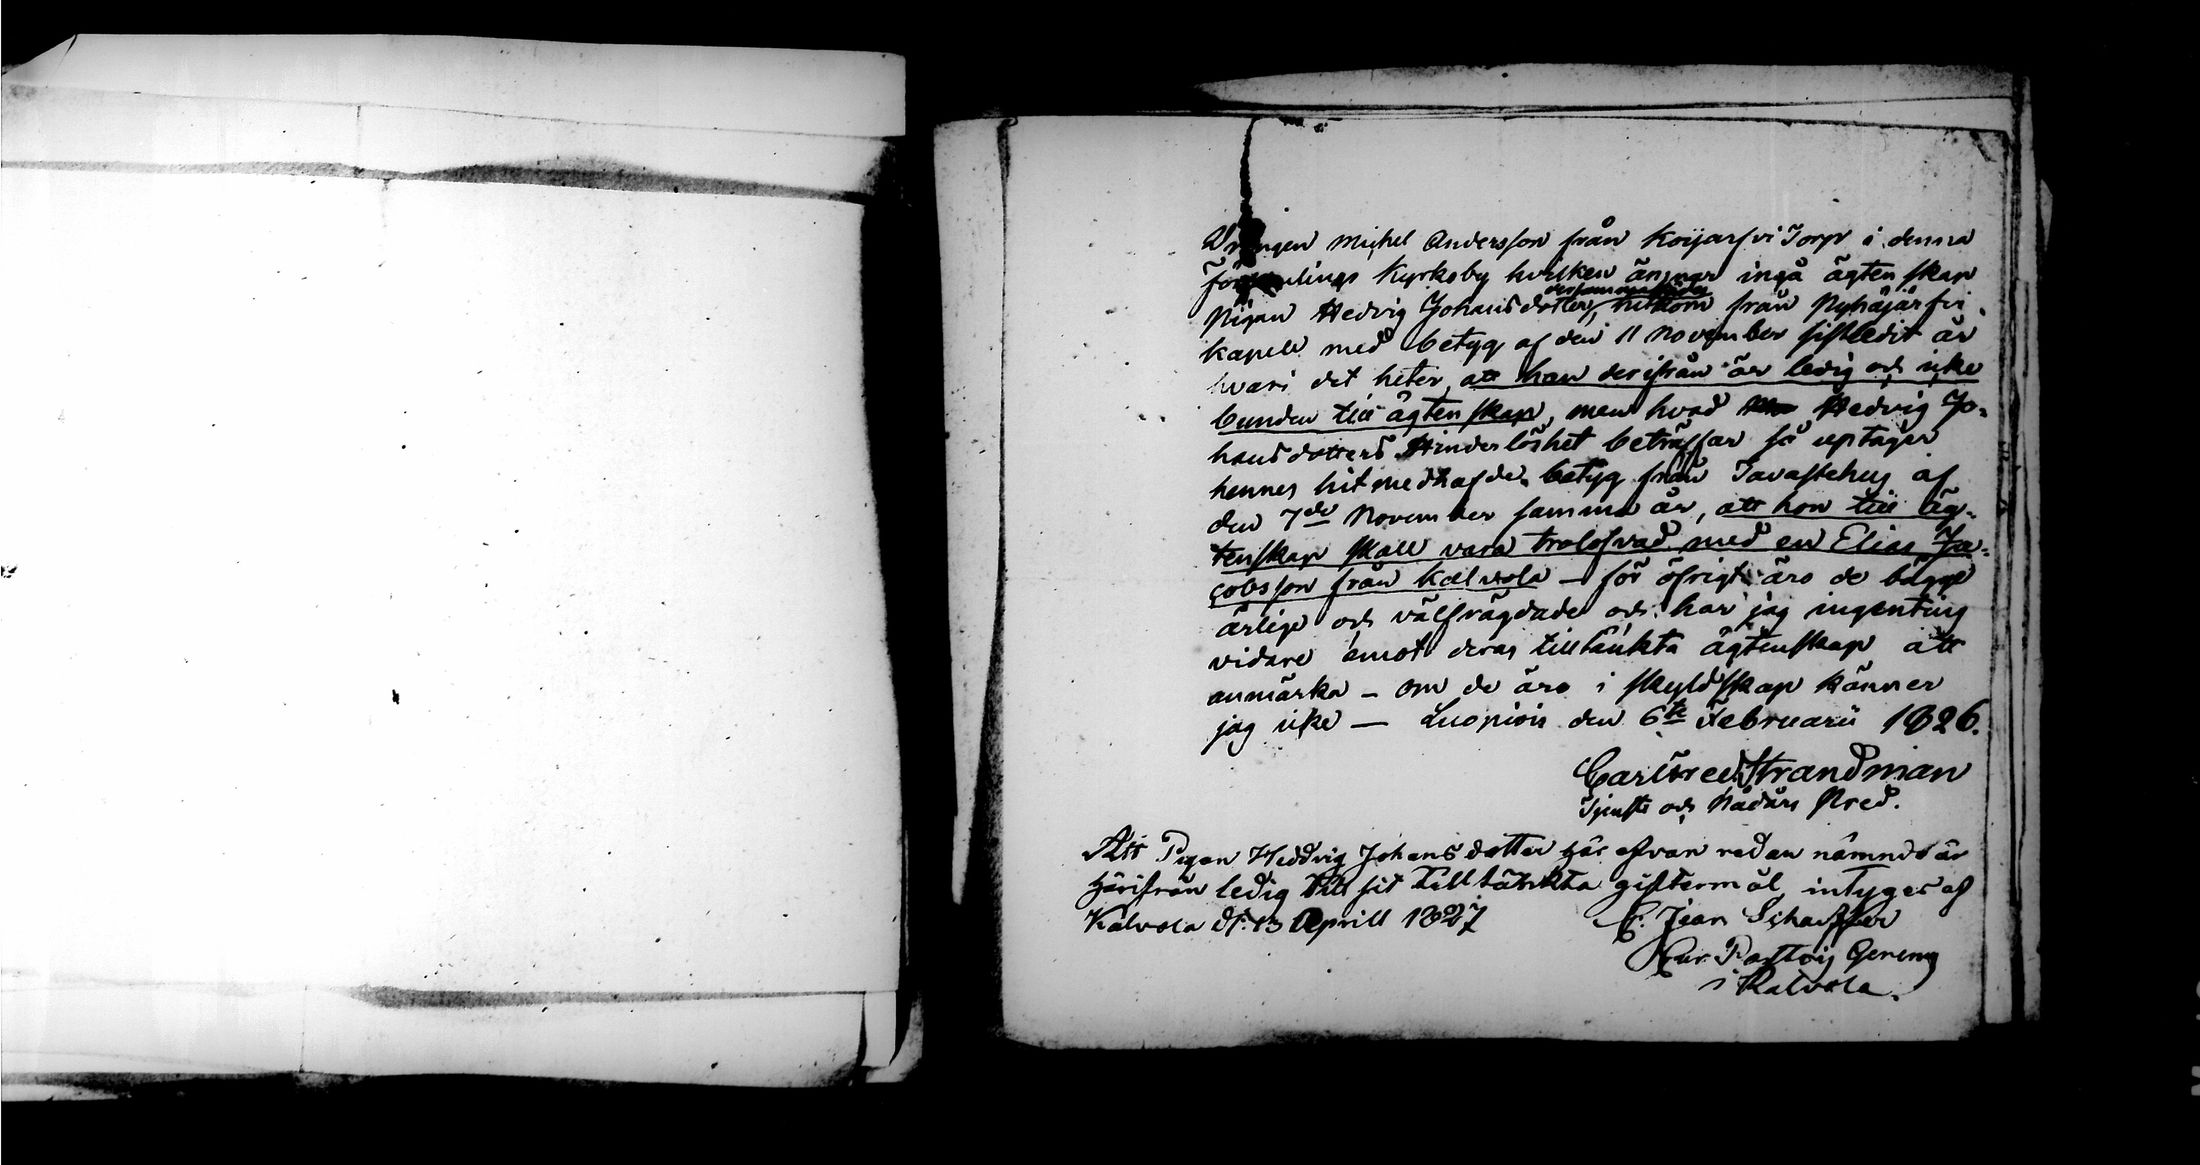 Drengen Michel Andersson från Koijarfvi Torp i denna
församlings Kyrkoby hvilken ämnar ingå ägtenskap
Pigan Hedvig Johansdotter, dersammastädes hitkom från Pyhäjärfvi
kapell med betyg af den 11 November sistledit år
hvari det heter, att han derifrån är ledig och icke
bunden till ägtenskap, men hvad Hedvig Jo-
hansdotters Hinderlöshet beträffar så uptager
hennes hitmedhafde betyg från Tavastehus af
den 7de November samma år, att hon till äg-
tenskap skall vara trolofvad med en Elias Ja-
cobsson från Kalvola – för öfrigt äro de bägge
ärlige och välfrägdade och har jag ingenting
vidare emot deras tilltänkta ägtenskap att
anmärka – om de äro i skyldskap känner
jag icke — Luopiois den 6te Februarii 1826.
Strandman
Tjenste och Nådårs Pred.
Att Pigan Heddvig Johansdotter här ofvan redan nämnd är
härifrån ledig till sit tilltänkta giftermål, intyges af
Kalvola d: 13 Aprill 1827 Jean Schæffer
i Kalvola.